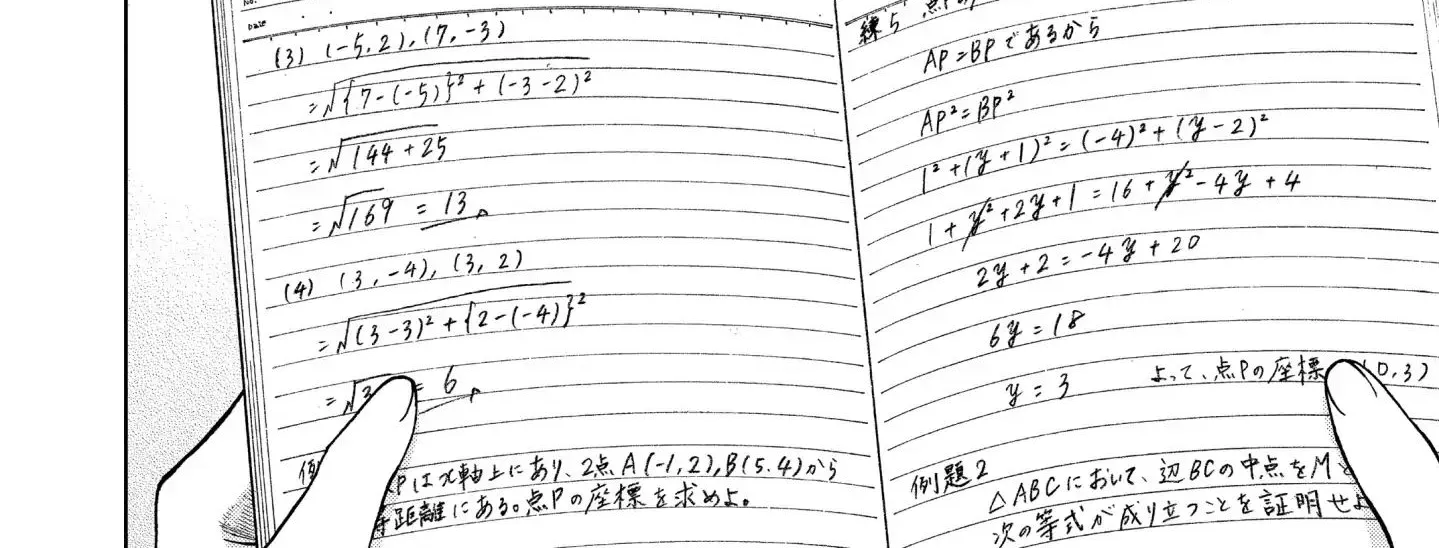 No.
Date
(3) (-5,2), (7,-3)
=√{7-(-5)}²+(-3-2)²
=√144+25
=√169 = 13
(4) (3,-4), (3,2)
=√(3-3)²+{2-(-4)}²
= 6
Pはx軸上にあり、2点A(-1,2),B(5.4)から
距離にある。点Pの座標を求めよ。
練5
AP=BPであるから
AP²=BP²
1²+(y+1)²=(-4)²+(y-2)²
1+y²+2y+1=16+y²-4y+4
2y+2=-4y+20
6y=18
y=3 よって、点Pの座標 (0,3)
例題2
△ABCにおいて、辺BCの中点をM
次の等式が成り立つことを証明せよ